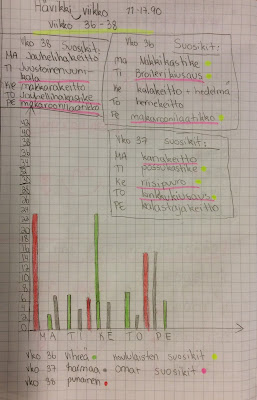 Hävikki viikko 11-17.90
viikko 36-38
Vko 38 Suosikit:
MA Jauhelihakeitto
TI Juustoinenuuni-
kala
KE makkarakeitto
TO Jauhelihakastike
PE makaroonilaatikko
Vko 36 Suosikit:
MA Nakkikastike
TI Broileri kiusaus
KE kalakeitto + hedelmä
TO hernekeitto
PE makaroonilaatikko
Vko 37 suosikit:
MA kanakeitto
TI possukastike
KE riisipuuro
TO kinkkukiusaus
PE kalastajakeitto
MA TI KE TO PE
vko 36 vihreä koululaisten suosikit
vko 37 harmaa omat suosikit
vko 38 punainen